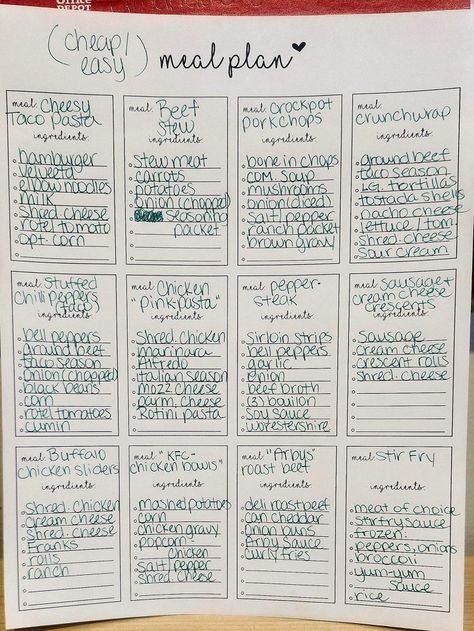 Office
DEPOT
(cheap/
easy)
meal plan
meal: Cheesy
Taco Pasta
ingredients:
hamburger
velveeta
elbow noodles
milk
shred. cheese
rotel tomato
opt. corn
meal: Beef
Stew
ingredients:
stew meat
carrots
potatoes
onion (chopped)
seasoning
packet
meal: crockpot
porkchops
ingredients:
bone in chops
com. soup
mushrooms
onion (diced)
salt/pepper
ranch packet
brown gravy
meal:
crunchwrap
ingredients:
ground beef
taco season
LG. tortillas
tostada shells
nacho cheese
lettuce/tom.
shred. cheese
sour cream
meal: stuffed
chili peppers
(taco)
ingredients:
bell peppers
ground beef
taco season
onion (chopped)
black beans
corn
rotel tomatoes
cumin
meal: Chicken
"Pink pasta"
ingredients:
shred. chicken
marinara
Alfredo
italian season
mozz cheese
parm. cheese
Rotini pasta
meal: pepper-
steak
ingredients:
sirloin strips
bell peppers
garlic
onion
beef broth
(3) bouillon
soy sauce
worestershire
meal: sausage +
cream cheese
crescents
ingredients:
sausage
cream cheese
crescent rolls
shred. cheese
meal: Buffalo
chicken sliders
ingredients:
shred. chicken
cream cheese
shred. cheese
Franks
rolls
ranch
meal: "KFC-
chicken bowls"
ingredients:
mashed potatoes
corn
chicken gravy
popcorn
chicken
salt/pepper
shred. cheese
meal: "Arbys"
roast beef
ingredients:
deli roast beef
can cheddar
onion buns
Arby sauce
curly fries
meal: stir Fry
ingredients:
meat of choice
stirfry sauce
frozen:
peppers, onions
broccoli
yum-yum
sauce
rice